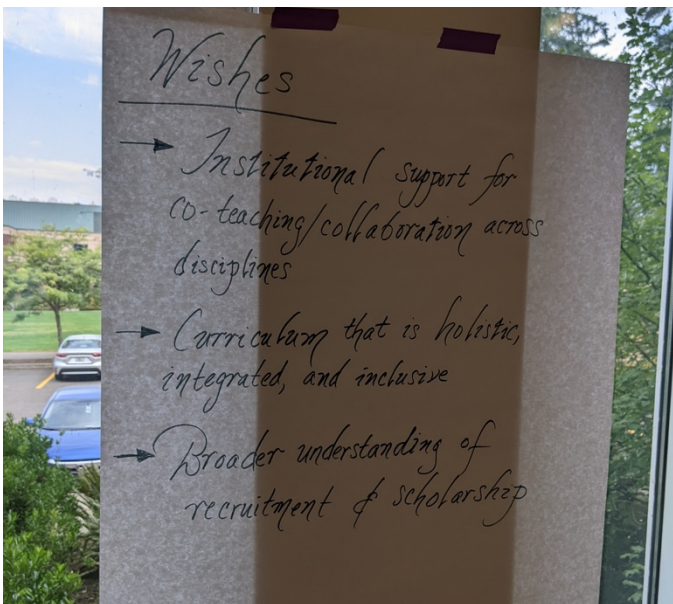 Wishes
→ Institutional support for
co-teaching/collaboration across
disciplines
→ Curriculum that is holistic,
integrated, and inclusive
→ Broader understanding of
recruitment & scholarship